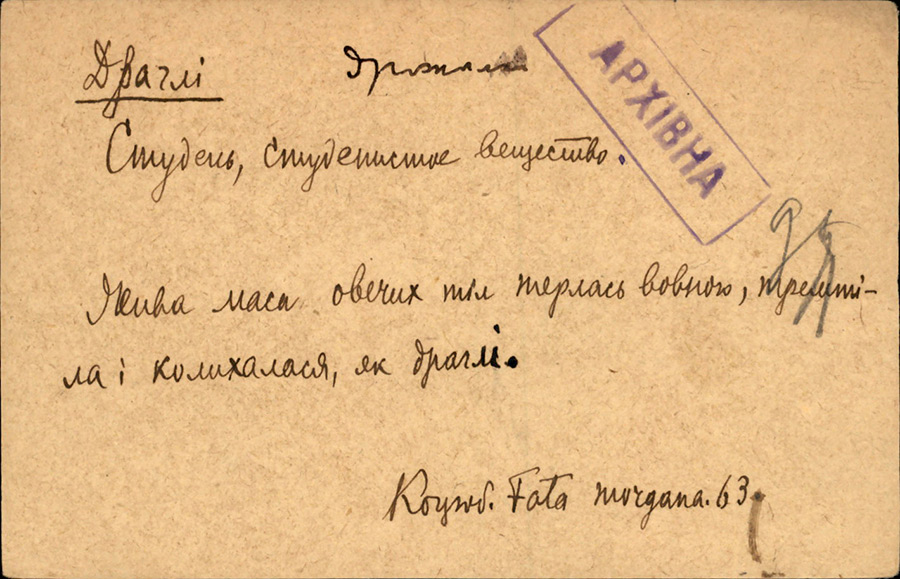 Драглі
АРХІВНА
Студень, студенистое вещество.
Жива маса овечих тіл терлась вовною, тремті-
ла і колихалася, як драглі.
Коцюб. Fata morgana. 63.